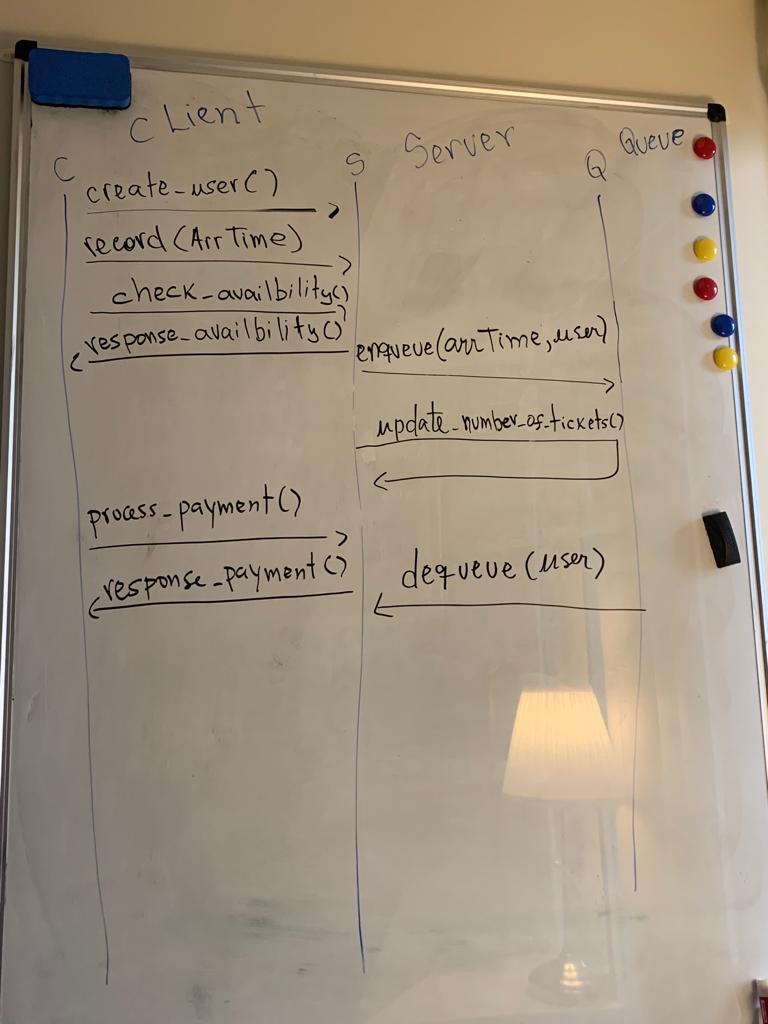 CLient
Server
Queue
C
S
Q
create_user()
record(ArrTime)
check_availbility()
response_availbility()
enqueue(arrTime,user)
update_number_of_tickets()
process_payment()
response_payment()
dequeue(user)